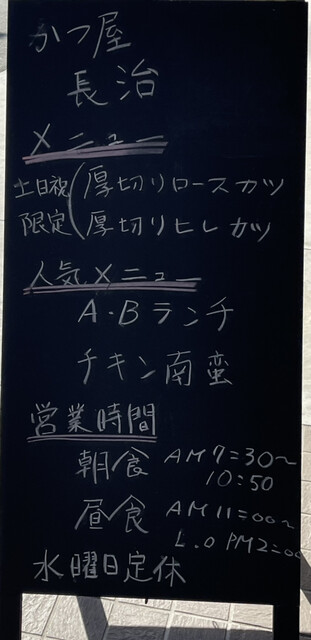 かつ屋
長治
メニュー
土日祝 厚切りロースカツ
限定 厚切りヒレカツ
人気メニュー
A・Bランチ
チキン南蛮
営業時間
朝食 AM7:30〜
10:50
昼食 AM11:00〜
L.O PM2:00
水曜日定休